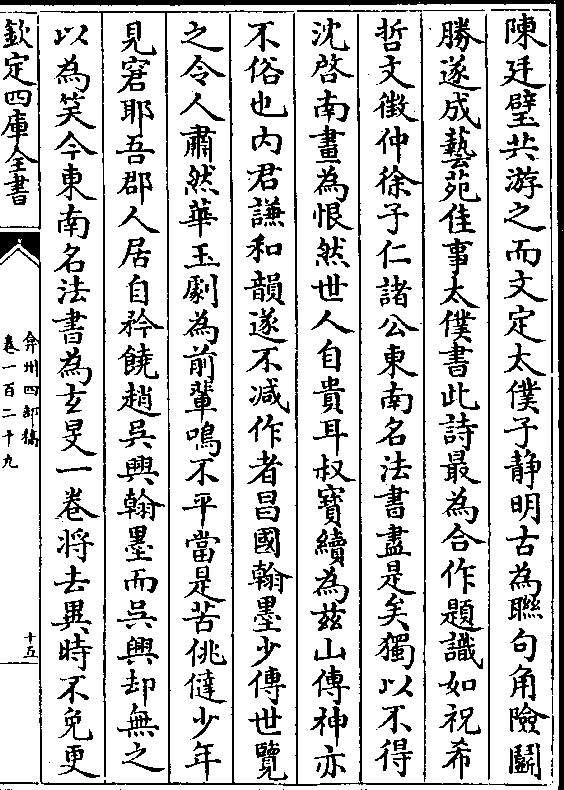 陳廷璧共游之而文定太僕子靜明古為聯句角險鬭
勝遂成藝苑佳事太僕書此詩最為合作題識如祝希
哲文徵仲徐子仁諸公東南名法書盡是矣獨以不得
沈啓南畫為恨然世人自貴耳叔寳續為兹山傳神亦
不俗也内君謙和韻遂不减作者昌國翰墨少傳世覽
之令人肅然華玉劇為前輩鳴不平當是苦佻㒓少年
見窘耶吾郡人居自矜饒趙吳興翰墨而吳興却無之
以為笑今東南名法書為玄旻一卷將去異時不免更
欽定四庫全書
弇州四部稿
卷一百二十九
十五